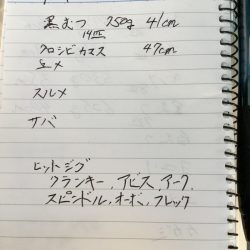 黒むつ 250g 41cm
14匹
クロシビカマス 47cm
ヒメ
スルメ
サバ
ヒットジグ
クランキー、アビス、アーク、
スピンドル、オーボ、フレック